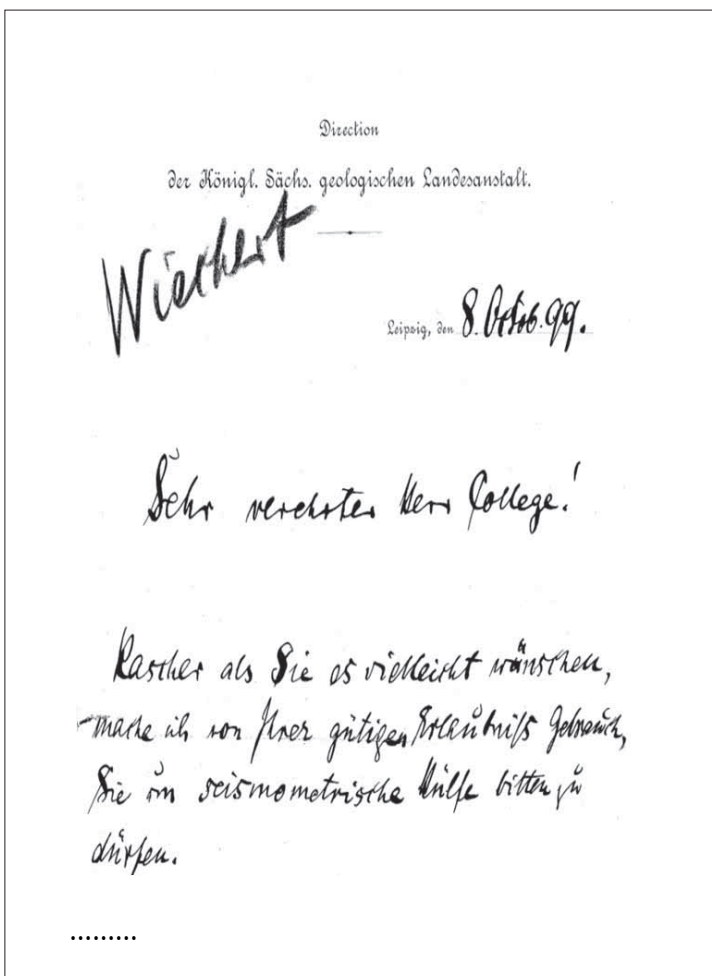 Direction
der Königl. Sächs. geologischen Landesanstalt.
Wiechert
Leipzig, den 8. Octob. 99.
Sehr verehrter Herr College!
Rascher als Sie es vielleicht wünschen,
mache ich von Ihrer gütigen Erlaubniß Gebrauch,
Sie um seismometrische Hülfe bitten zu
dürfen.
.........